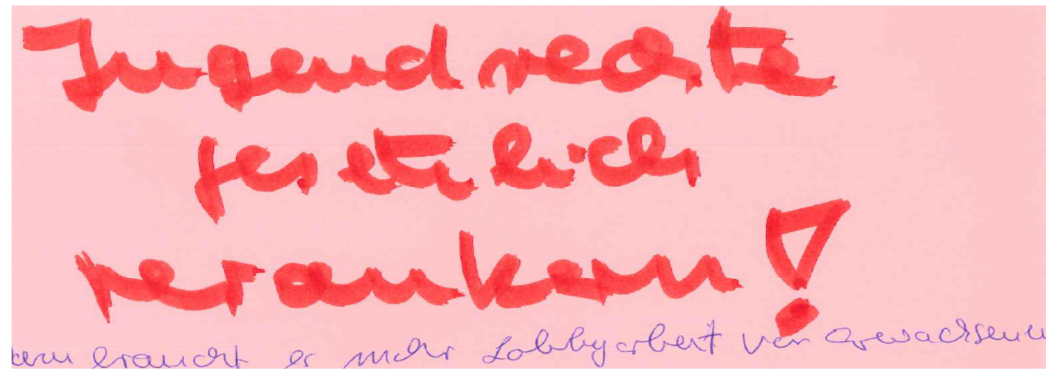 Jugendrechte
gesetzlich
verankern!
braucht es mehr Lobbyarbeit von Erwachsenen